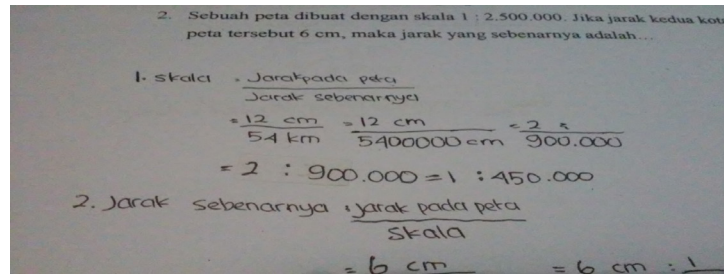 2. Sebuah peta dibuat dengan skala 1 : 2.500.000. Jika jarak kedua kot
peta tersebut 6 cm, maka jarak yang sebenarnya adalah...
1. skala = Jarak pada peta
Jarak sebenarnya
= 12 cm = 12 cm = 2
54 km 5400000 cm 900.000
= 2 : 900.000 = 1 : 450.000
2. Jarak sebenarnya = jarak pada peta
Skala
= 6 cm = 6 cm : 1